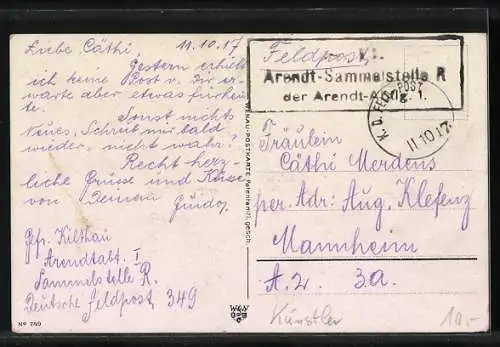 Liebe Cäthi, 11.10.17
Gestern erhielt
ich keine Post v. Dir er-
warte aber etwas für heu-
te. Sonst nichts
Neues, Schreib mir bald
wieder, nicht wahr?
Recht herz-
liche Grüsse und Küsse
von Deinem
Gefr. Kilthau
Arendtabt. I
Sammelstelle R.
Deutsche Feldpost 349
Nº 749
WENAU-POSTKARTE Patentamtl. gesch.
Feldpost
Arendt-Sammelstelle R
der Arendt-Abtlg. 1.
K. D. FELDPOST
11.10.17
Fräulein
Cäthi Merdens
per. Adr: Aug. Klefenz
Mannheim
A. 2. 3a.
Künstler
10.-